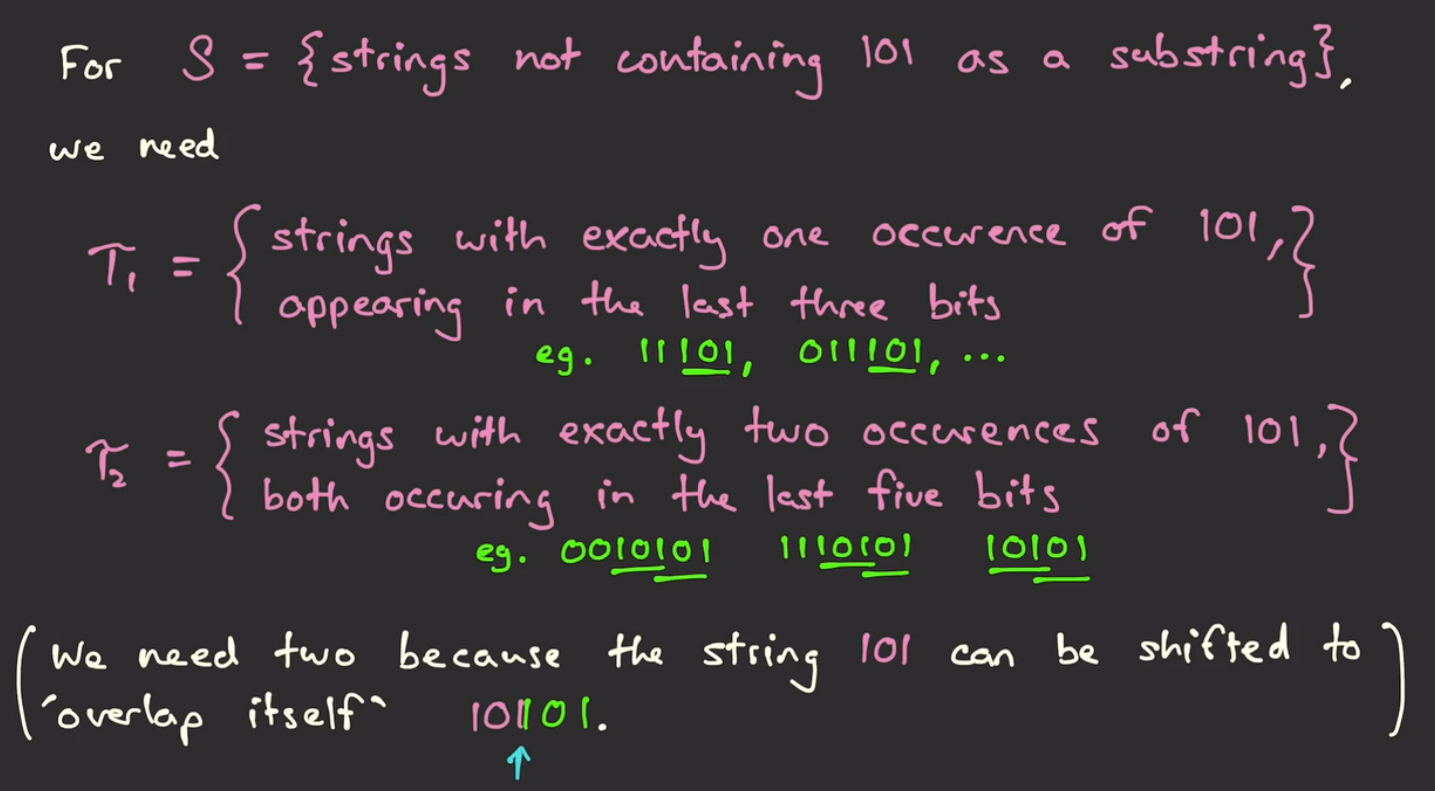 For S = {strings not containing 101 as a substring},
we need
T₁ = { strings with exactly one occurence of 101,
appearing in the last three bits }
eg. 11101, 011101, ...
T₂ = { strings with exactly two occurences of 101,
both occuring in the last five bits }
eg. 0010101 1110101 10101
(We need two because the string 101 can be shifted to
"overlap itself" 101101.)
↑